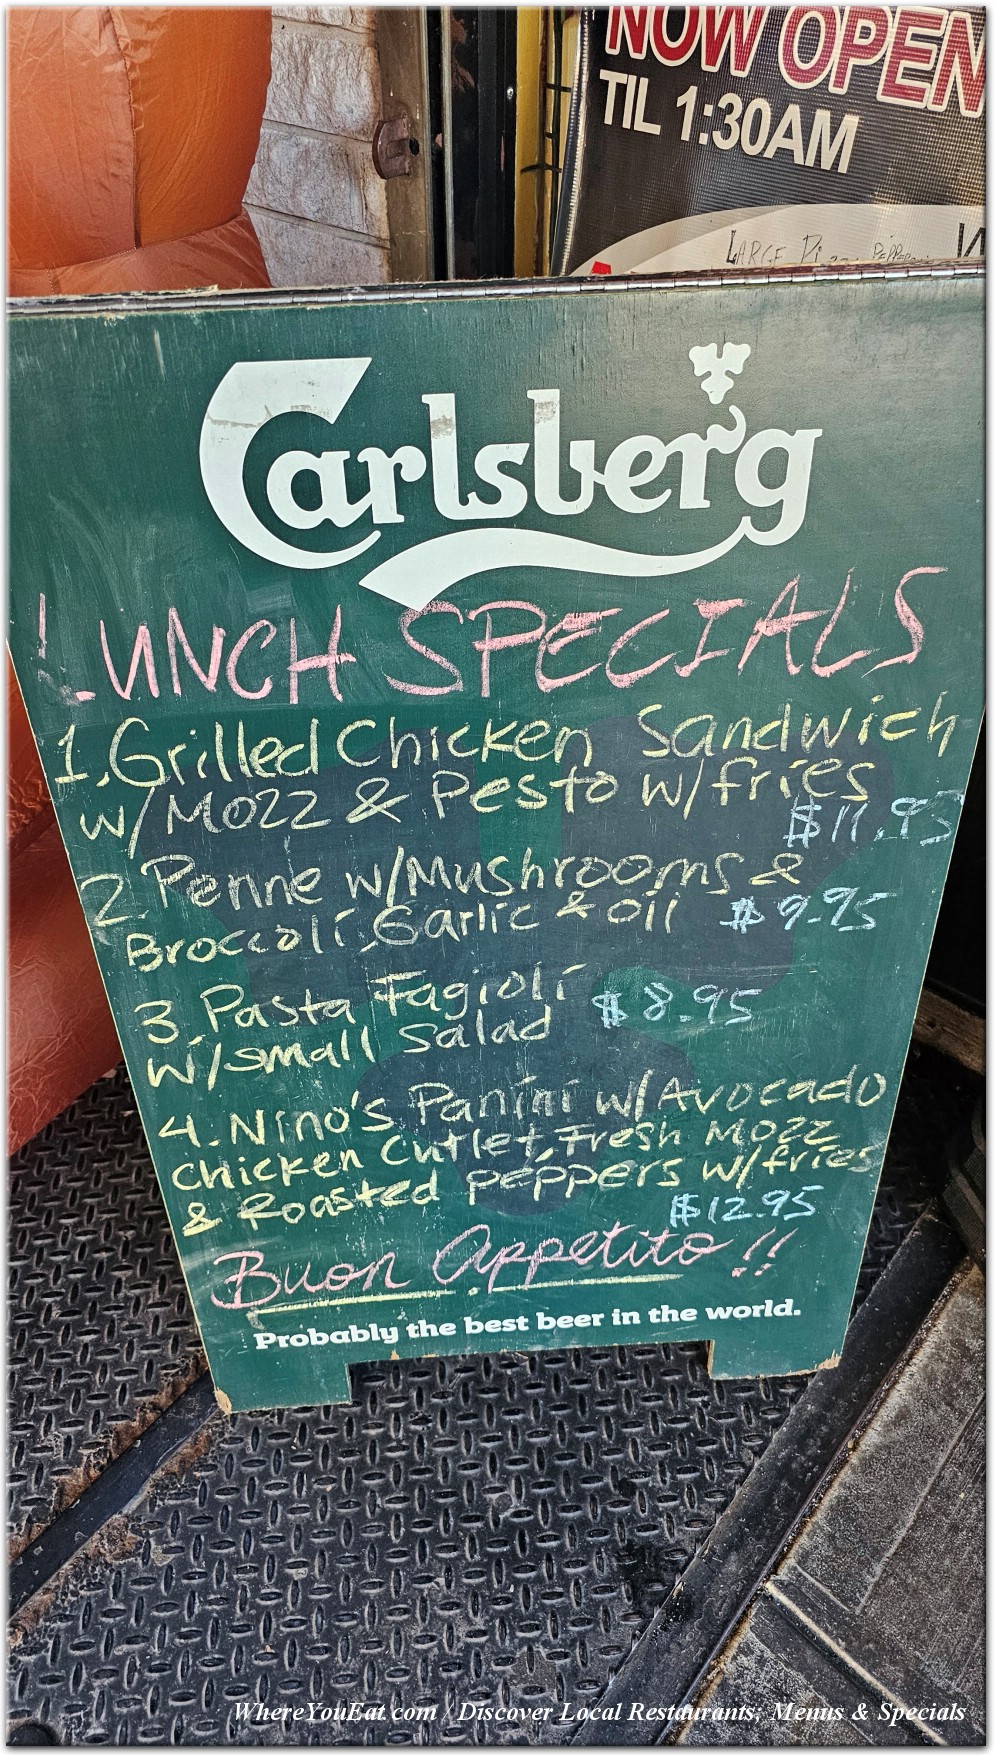 NOW OPEN
TIL 1:30AM
LARGE
Carlsberg
LUNCH SPECIALS
1. Grilled Chicken Sandwich
w/ Mozz & Pesto w/fries
$11.95
2. Penne w/Mushrooms &
Broccoli, Garlic & oil $9.95
3. Pasta Fagioli $8.95
w/small Salad
4. Nino's Panini w/Avocado
Chicken Cutlet, Fresh Mozz
& Roasted peppers w/fries
$12.95
Buon Appetito!!
Probably the best beer in the world.
WhereYouEat.com / Discover Local Restaurants, Menus & Specials